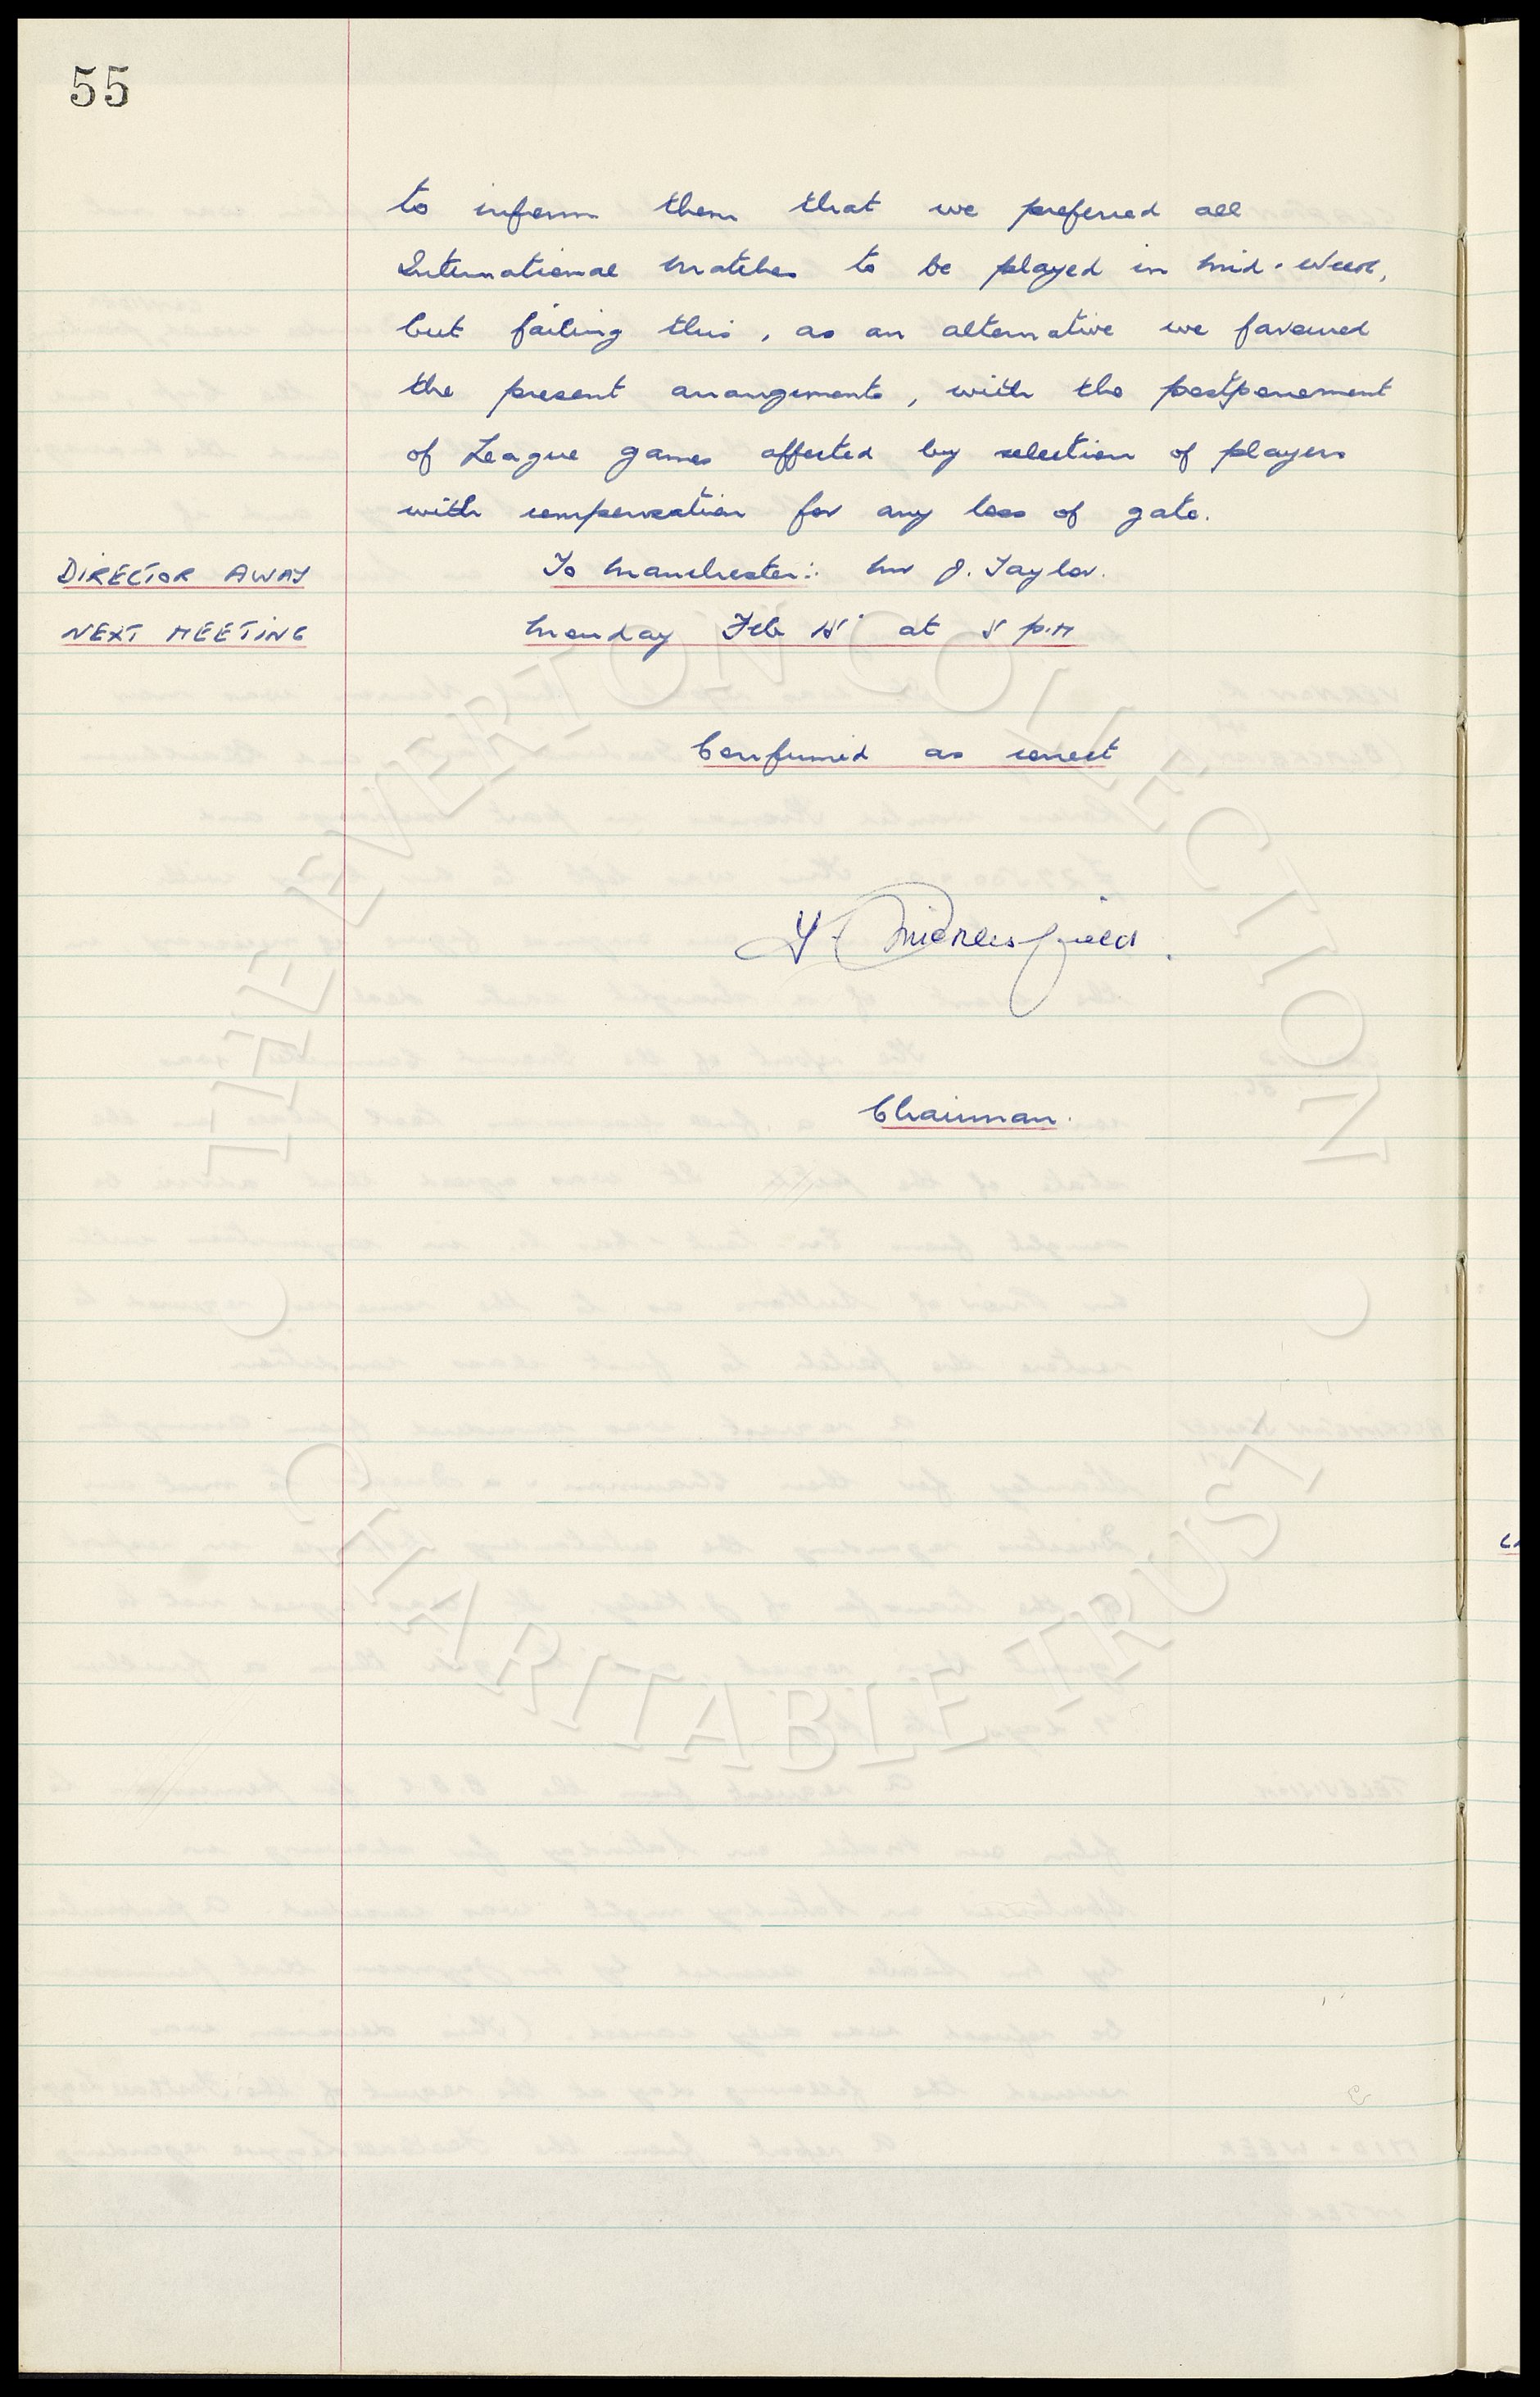 55
to inform them that we preferred all
International matches to be played in mid-week,
but failing this, as an alternative we favoured
the present arrangements, with the postponement
of League games affected by selection of players
with compensation for any loss of gate.
DIRECTOR AWAY To Manchester:. Mr J. Taylor.
NEXT MEETING Monday Feb 15' at 5 p.m
Confirmed as correct
F Micklesfield.
Chairman.
THE EVERTON COLLECTION
CHARITABLE TRUST